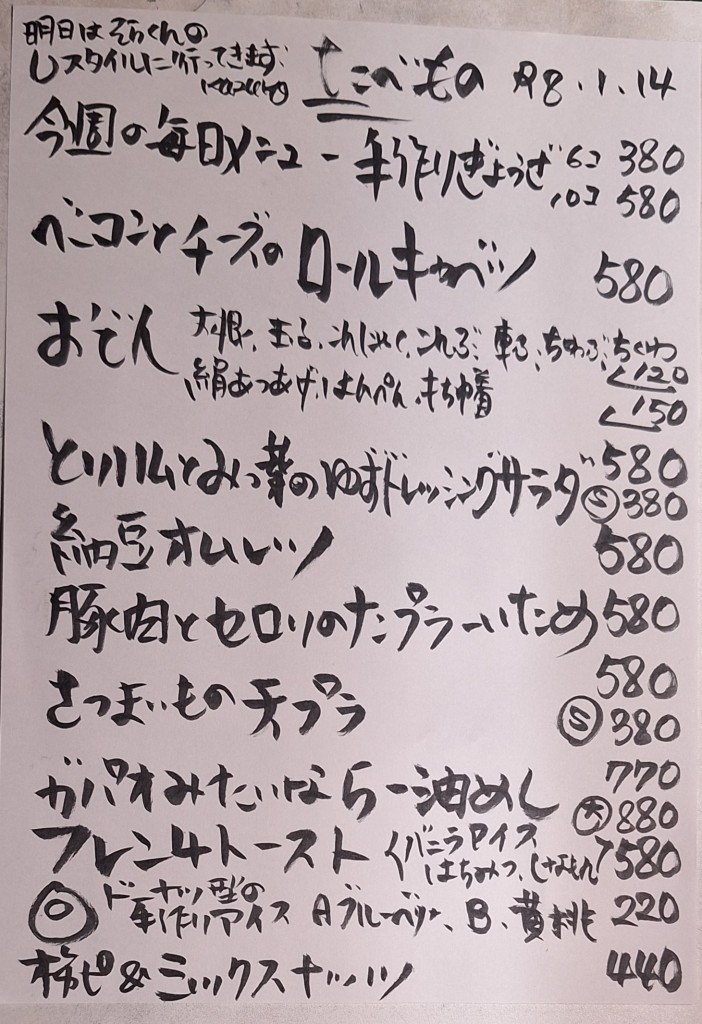 明日はそらくんの
Lスタイルに行ってきます
たべもの R8.1.14
今週の毎日メニュー 手作りぎょうざ 6コ 380
10コ 580
ベーコンとチーズの ロールキャベツ 580
おでん 大根、玉子、こんにゃく、こんぶ、車ふ、ちくわぶ、ちくわ
120
絹あつあげ、はんぺん、もち巾着
150
とりハムとみつ葉のゆずドレッシングサラダ 580
Ⓢ380
納豆オムレツ 580
豚肉とセロリのナンプラーいため 580
さつまいもの天プラ 580
Ⓢ380
ガパオみたいならー油めし 770
大 880
フレンチトースト (バニラアイス
はちみつ、しなもん) 580
ドーナツ型の
手作りアイス Aブルーベリー、B、黄桃 220
柿ピ&ミックスナッツ 440